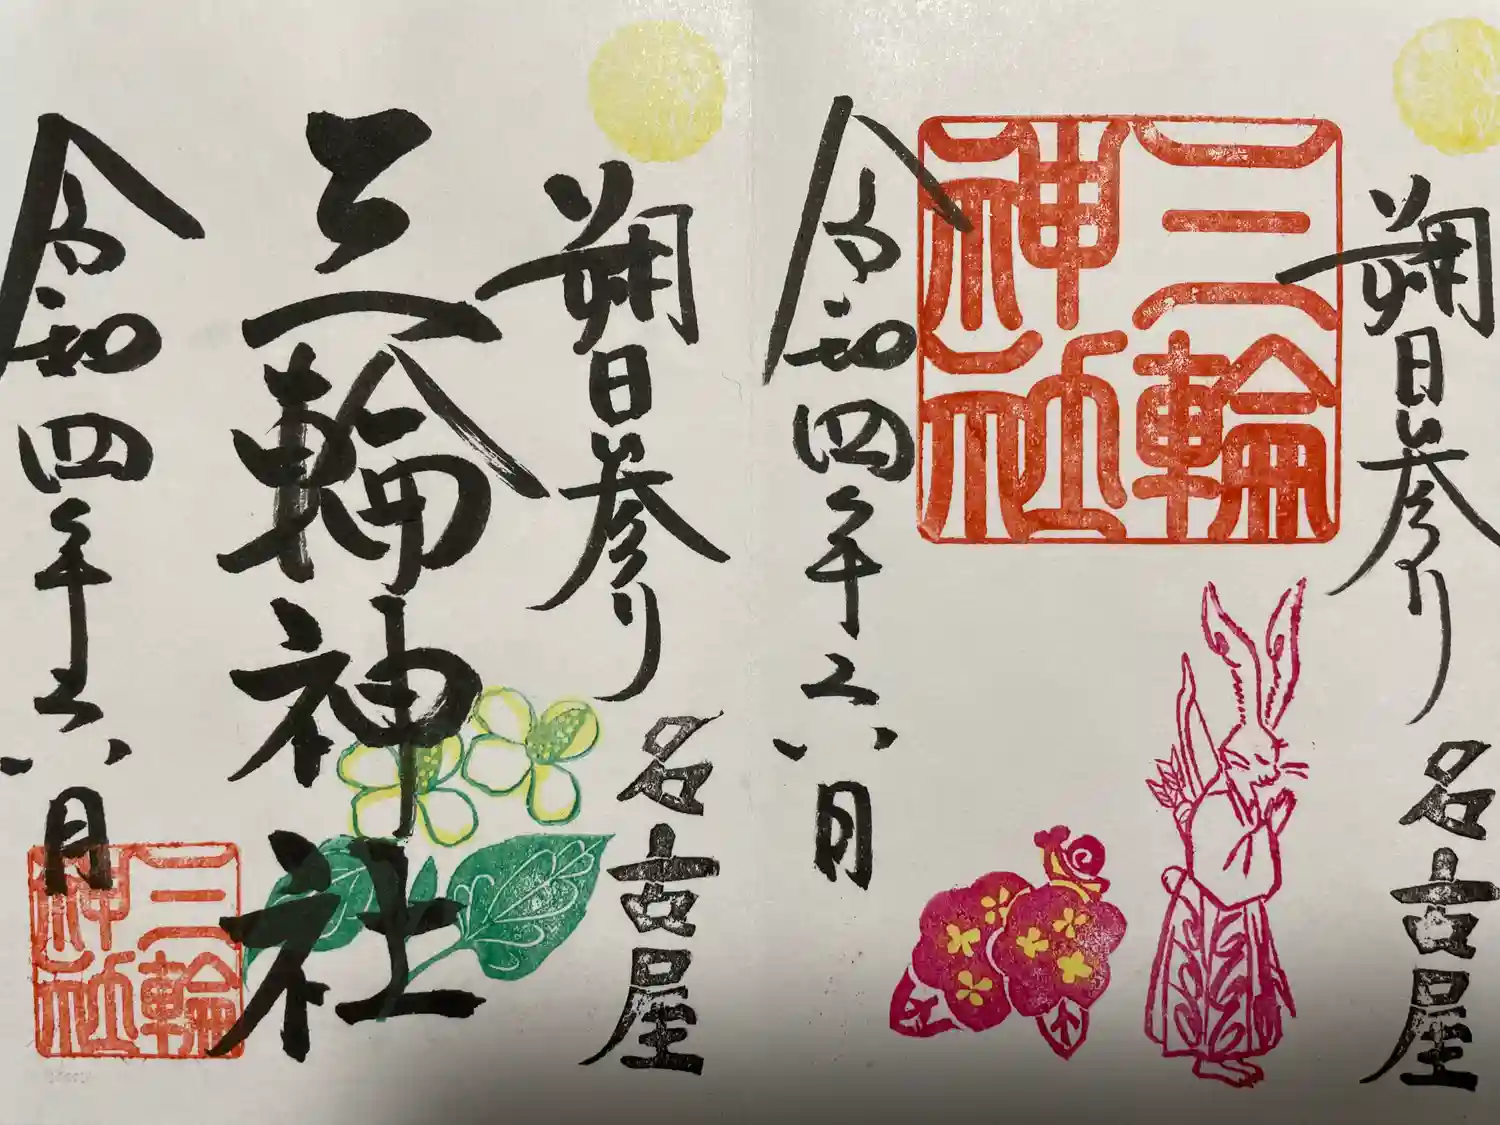 朔日参り
名古屋
三輪
神社
令和四年六月
朔日参り
名古屋
三輪神社
令和四年六月
三輪
神社